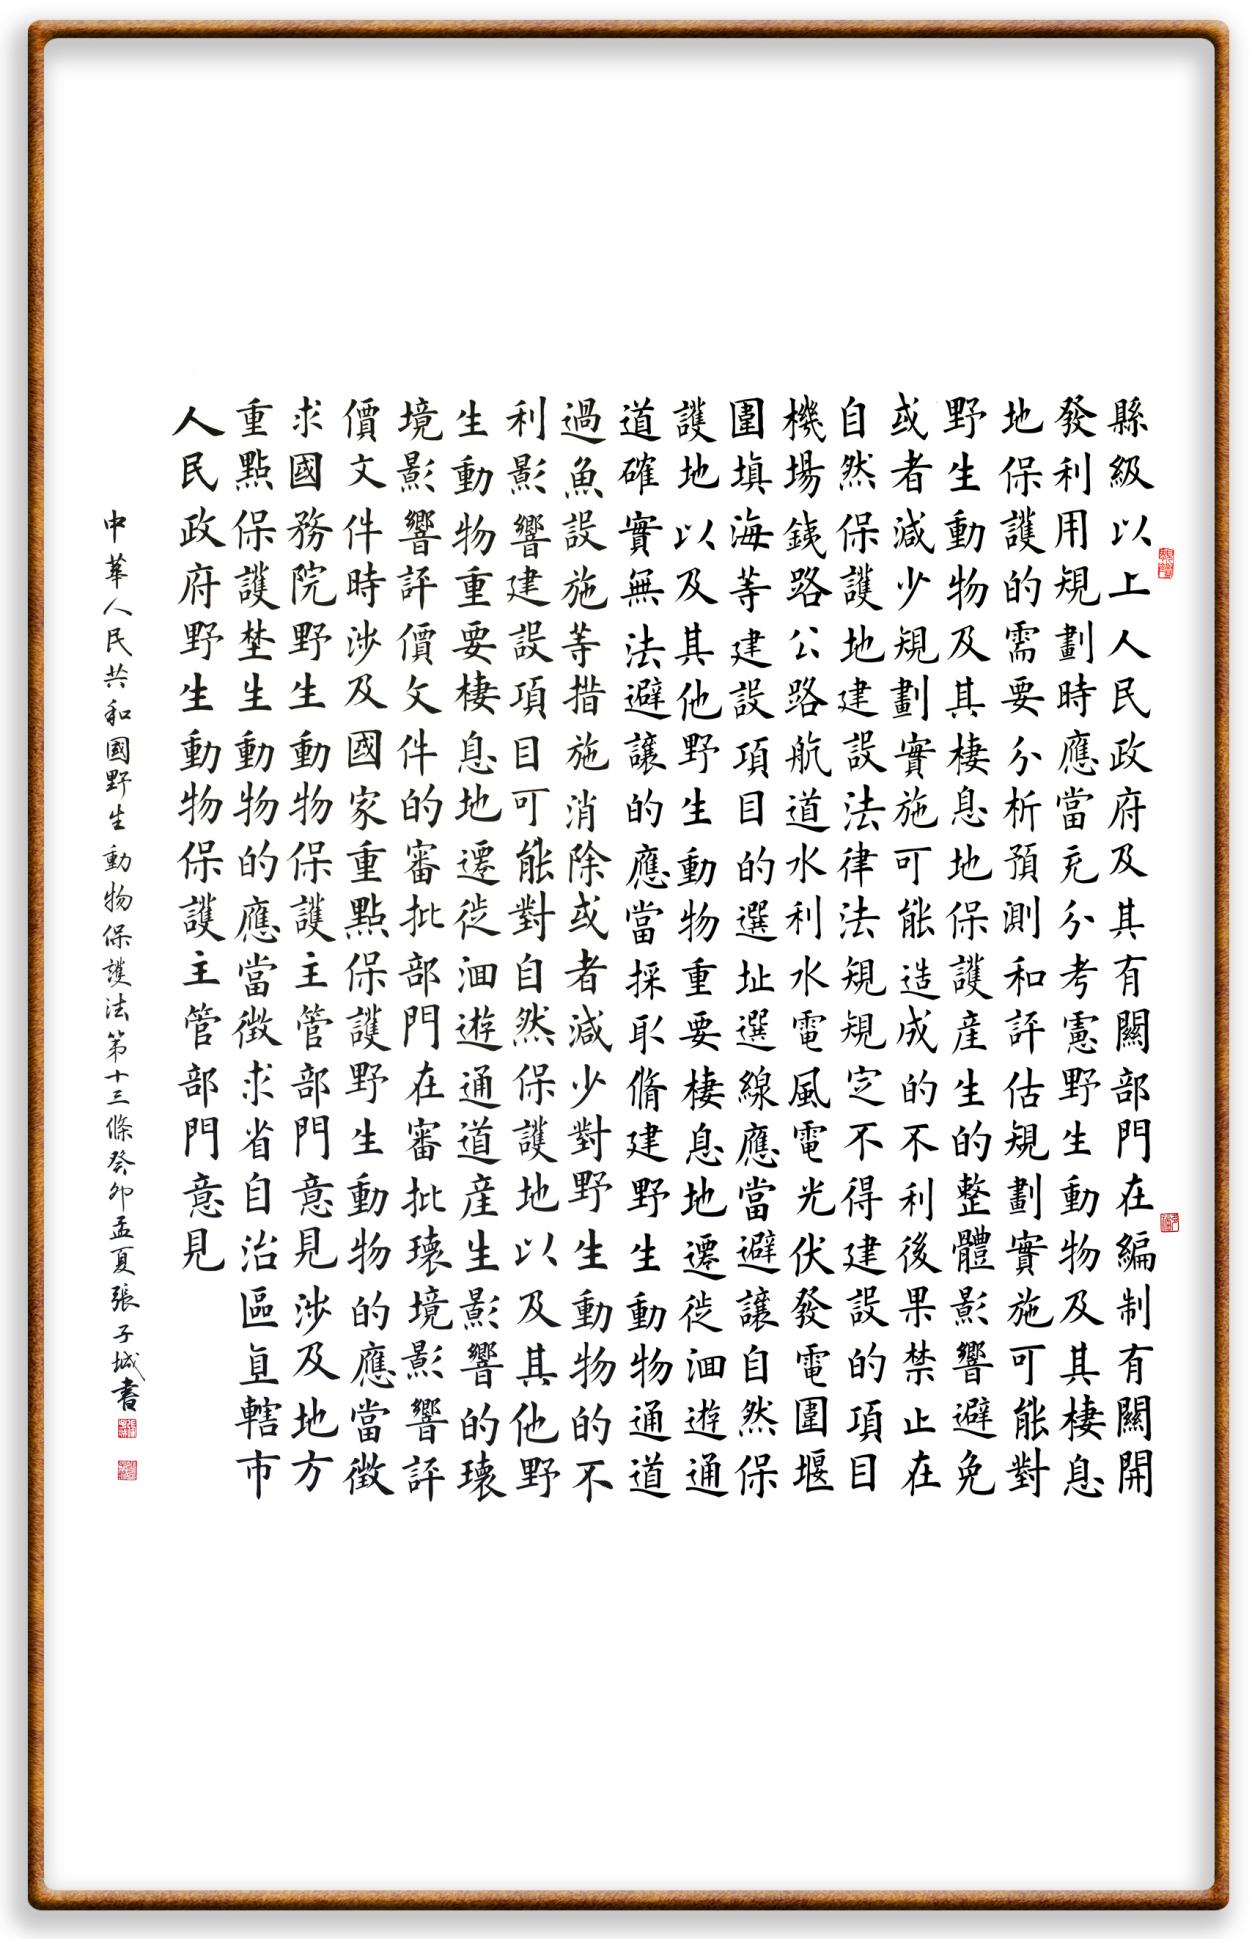 縣級以上人民政府及其有關部門在編制有關開
發利用規劃時應當充分考憲野生動物及其棲息
地保護的需要分析預測和評估規劃實施可能對
野生動物及其棲息地保護産生的整體影響避免
或者減少規劃實施可能造成的不利後果禁止在
自然保護地建設法律法規規定不得建設的項目
機場鐵路公路航道水利水電風電光伏發電圍堰
圍填海等建設項目的選址選線應當避讓自然保
護地以及其他野生動物重要棲息地遷徙洄遊通
道確實無法避讓的應當採取脩建野生動物通道
過魚設施等措施消除或者減少對野生動物的不
利影響建設項目可能對自然保護地以及其他野
生動物重要棲息地遷徙洄遊通道産生影響的環
境影響評價文件的審批部門在審批環境影響評
價文件時涉及國家重點保護野生動物的應當徵
求國務院野生動物保護主管部門意見涉及地方
重點保護埜生動物的應當徵求省自治區直轄市
人民政府野生動物保護主管部門意見
中華人民共和國野生動物保護法第十三條癸卯孟夏張子城書